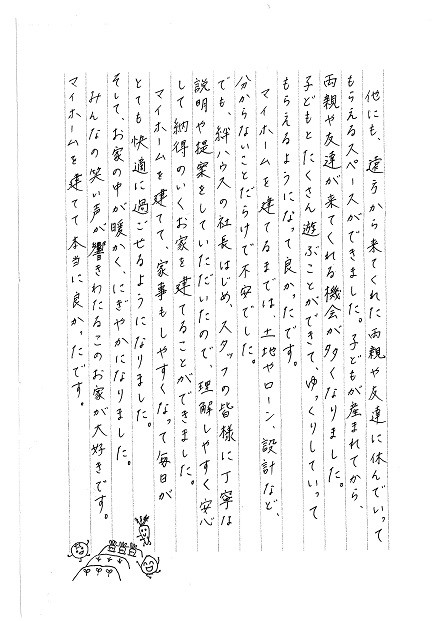 他にも、遠方から来てくれた両親や友達に休んでいって
もらえるスペースができました。子どもが産まれてから、
両親や友達が来てくれる機会が多くなりました。
子どもとたくさん遊ぶことができて、ゆっくりしていって
もらえるようになって良かったです。
マイホームを建てるまでは、土地やローン、設計など、
分からないことだらけで不安でした。
でも、絆ハウスの社長はじめ、スタッフの皆様に丁寧な
説明や提案をしていただいたので、理解しやすく安心
して納得のいくお家を建てることができました。
マイホームを建てて、家事もしやすくなって毎日が
とても快適に過ごせるようになりました。
そして、お家の中が暖かく、にぎやかになりました。
みんなの笑い声が響きわたるこのお家が大好きです。
マイホームを建てて本当に良かったです。